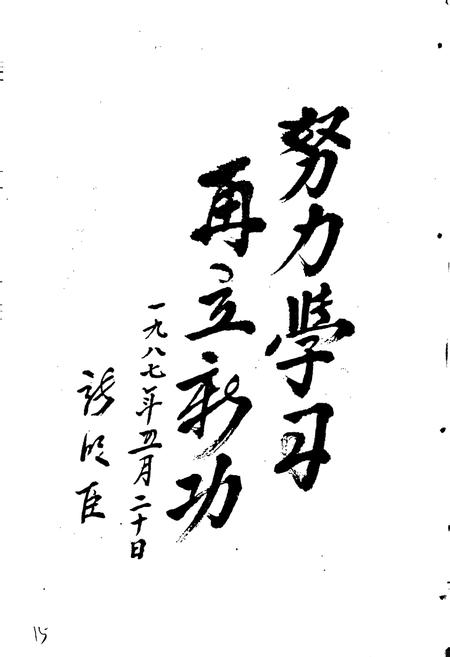 努力学习
再立新功
一九八七年五月二十日
15